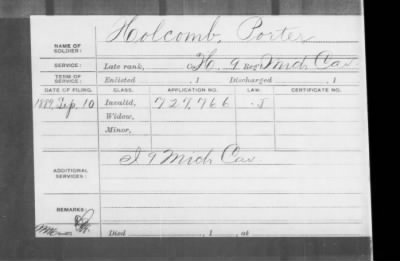 NAME OF SOLDIER: Holcomb, Porter
SERVICE: Late rank, Co. H, 9 Reg't Mich Cav
TERM OF SERVICE: Enlisted , 1 Discharged , 1
DATE OF FILING. CLASS. APPLICATION NO. LAW. CERTIFICATE NO.
1889, Sep. 10 Invalid, 727,766
Widow,
Minor,
ADDITIONAL SERVICES: I 9 Mich Cav
REMARKS:
Died , 1 , at